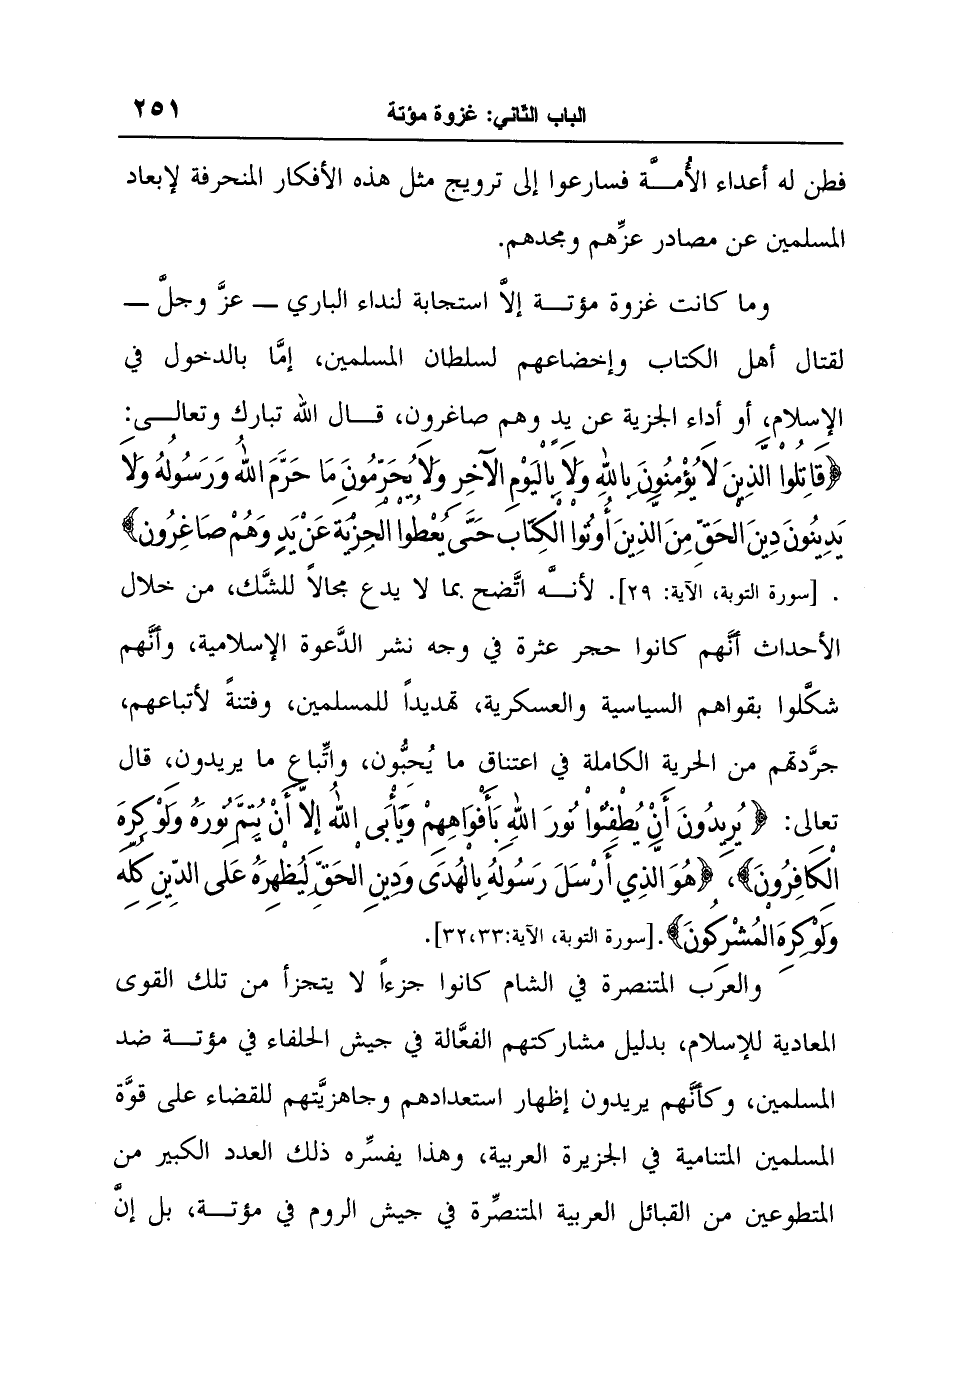 الباب الثاني: غزوة مؤتة ٢٥١
فطن له أعداء الأُمــَّة فسارعوا إلى ترويج مثل هذه الأفكار المنحرفة لإبعاد
المسلمين عن مصادر عزِّهم ومجدهم.
وما كانت غزوة مؤتــة إلاَّ استجابة لنداء الباري ــ عزَّ وجلَّ ــ
لقتال أهل الكتاب وإخضاعهم لسلطان المسلمين، إمَّا بالدخول في
الإسلام، أو أداء الجزية عن يدٍ وهم صاغرون، قــال الله تبارك وتعالــى:
﴿قَاتِلُوا الَّذِينَ لاَ يُؤْمِنُونَ بِاللهِ وَلاَ بِالْيَوْمِ الآخِرِ وَلاَ يُحَرِّمُونَ مَا حَرَّمَ اللهُ وَرَسُولُهُ وَلاَ
يَدِينُونَ دِينَ الْحَقِّ مِنَ الَّذِينَ أُوتُوا الْكِتَابَ حَتَّى يُعْطُوا الْجِزْيَةَ عَنْ يَدٍ وَهُمْ صَاغِرُون﴾
. [سورة التوبة، الآية: ٢٩]. لأنــَّه اتَّضح بما لا يدع مجالاً للشَّك، من خلال
الأحداث أنَّهم كانوا حجر عثرة في وجه نشر الدَّعوة الإسلامية، وأنَّهم
شكَّلوا بقواهم السياسية والعسكرية، تهديداً للمسلمين، وفتنةً لأتباعهم،
جرَّدتهم من الحرية الكاملة في اعتناق ما يُحبُّون، واتِّباع ما يريدون، قال
تعالى: ﴿يُرِيدُونَ أَنْ يُطْفِئُوا نُورَ اللهِ بِأَفْوَاهِهِمْ وَيَأْبَى اللهُ إِلاَّ أَنْ يُتِمَّ نُورَهُ وَلَوْ كَرِهَ
الْكَافِرُونَ﴾، ﴿هُوَ الَّذِي أَرْسَلَ رَسُولَهُ بِالْهُدَى وَدِينِ الْحَقِّ لِيُظْهِرَهُ عَلَى الدِّينِ كُلِّهِ
وَلَوْ كَرِهَ الْمُشْرِكُونَ﴾. [سورة التوبة، الآية:٣٢،٣٣].
والعرب المتنصرة في الشام كانوا جزءاً لا يتجزأ من تلك القوى
المعادية للإسلام، بدليل مشاركتهم الفعَّالة في جيش الحلفاء في مؤتــة ضد
المسلمين، وكأنَّهم يريدون إظهار استعدادهم وجاهزيَّتهم للقضاء على قوَّة
المسلمين المتنامية في الجزيرة العربية، وهذا يفسِّره ذلك العدد الكبير من
المتطوعين من القبائل العربية المتنصِّرة في جيش الروم في مؤتــة، بل إنَّ